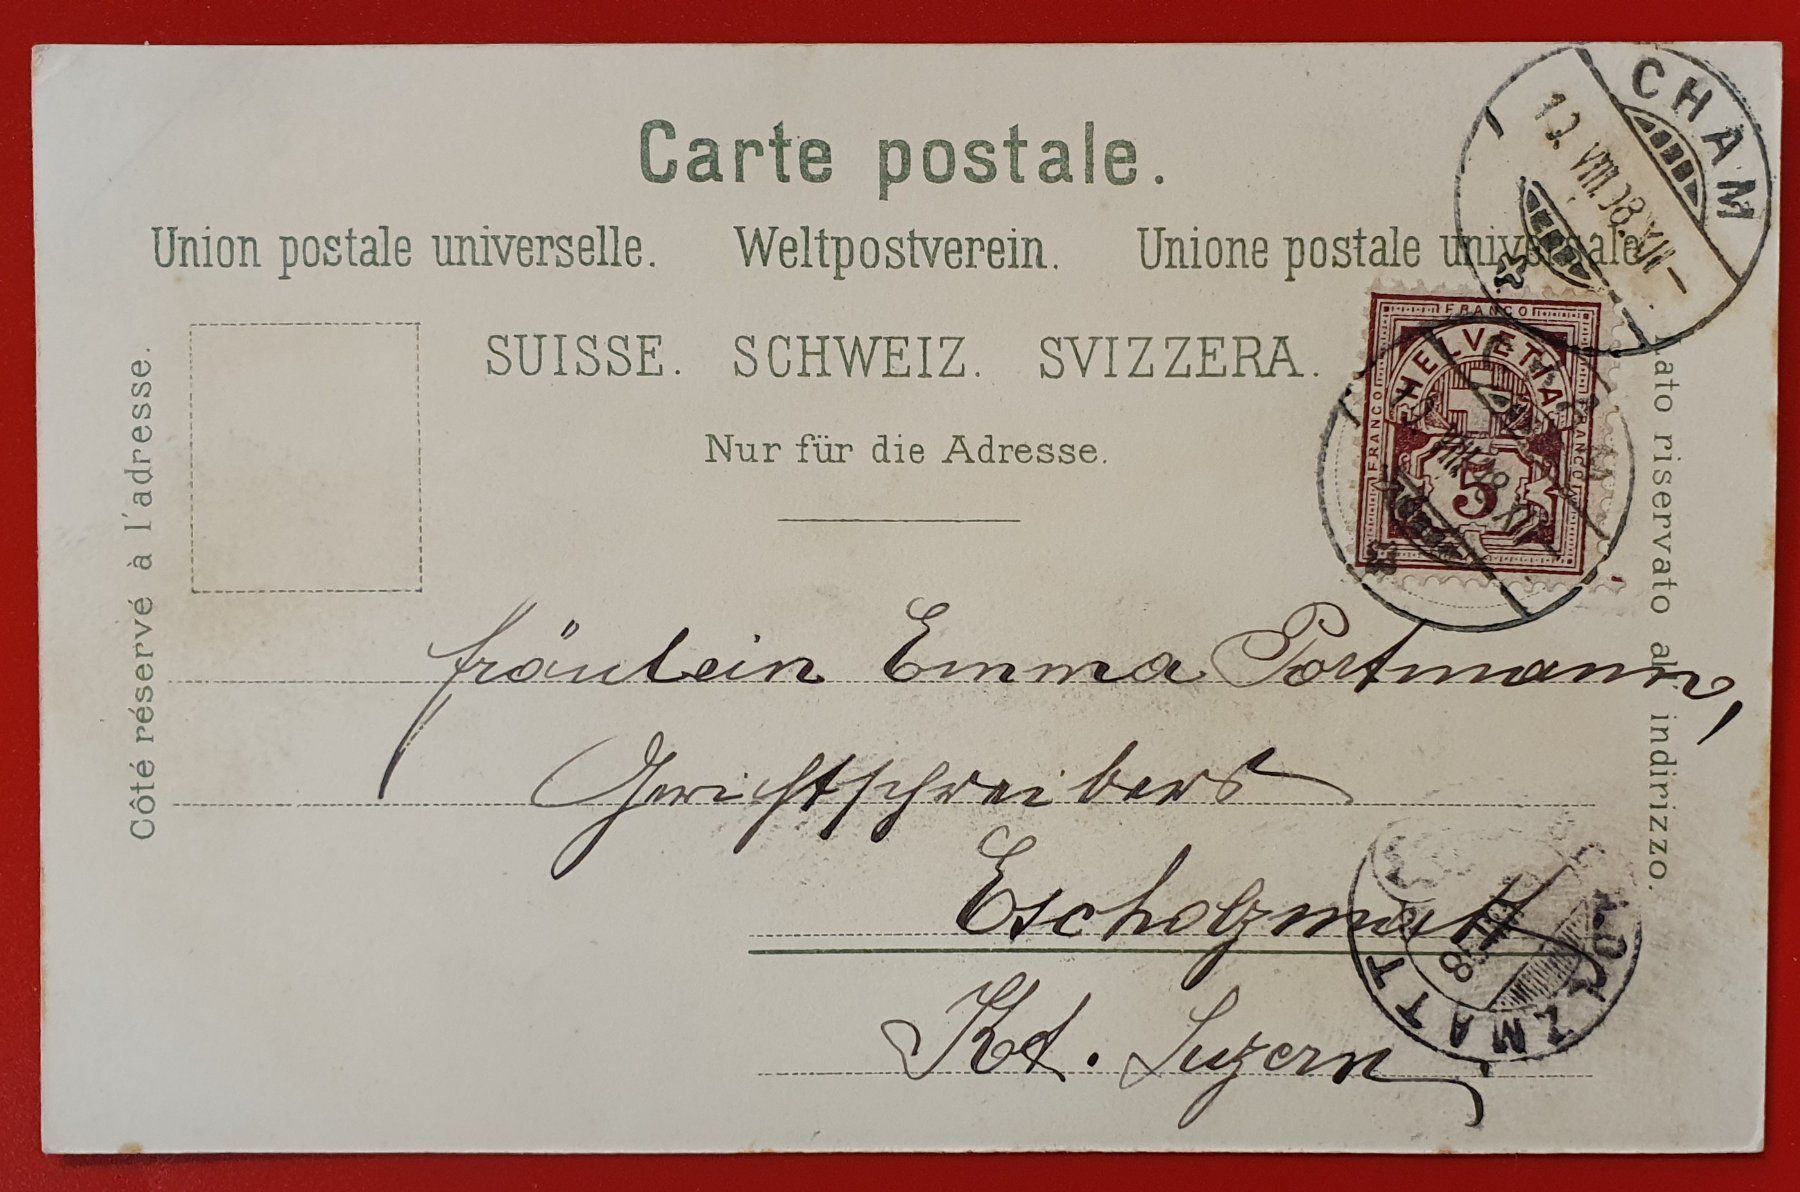 Carte postale.
Union postale universelle. Weltpostverein. Unione postale universale
SUISSE. SCHWEIZ. SVIZZERA.
Nur für die Adresse.
Côté réservé à l'adresse.
lato riservato all' indirizzo.
CHAM
VIII.98.XII-
FRANCO
HELVETIA
FRANCO
FRANCO
5
CHAM
VIII.98.XII
Fräulein Emma Portmann,
Gerichtschreibers
Escholzmatt
Kt. Luzern
ZMATT